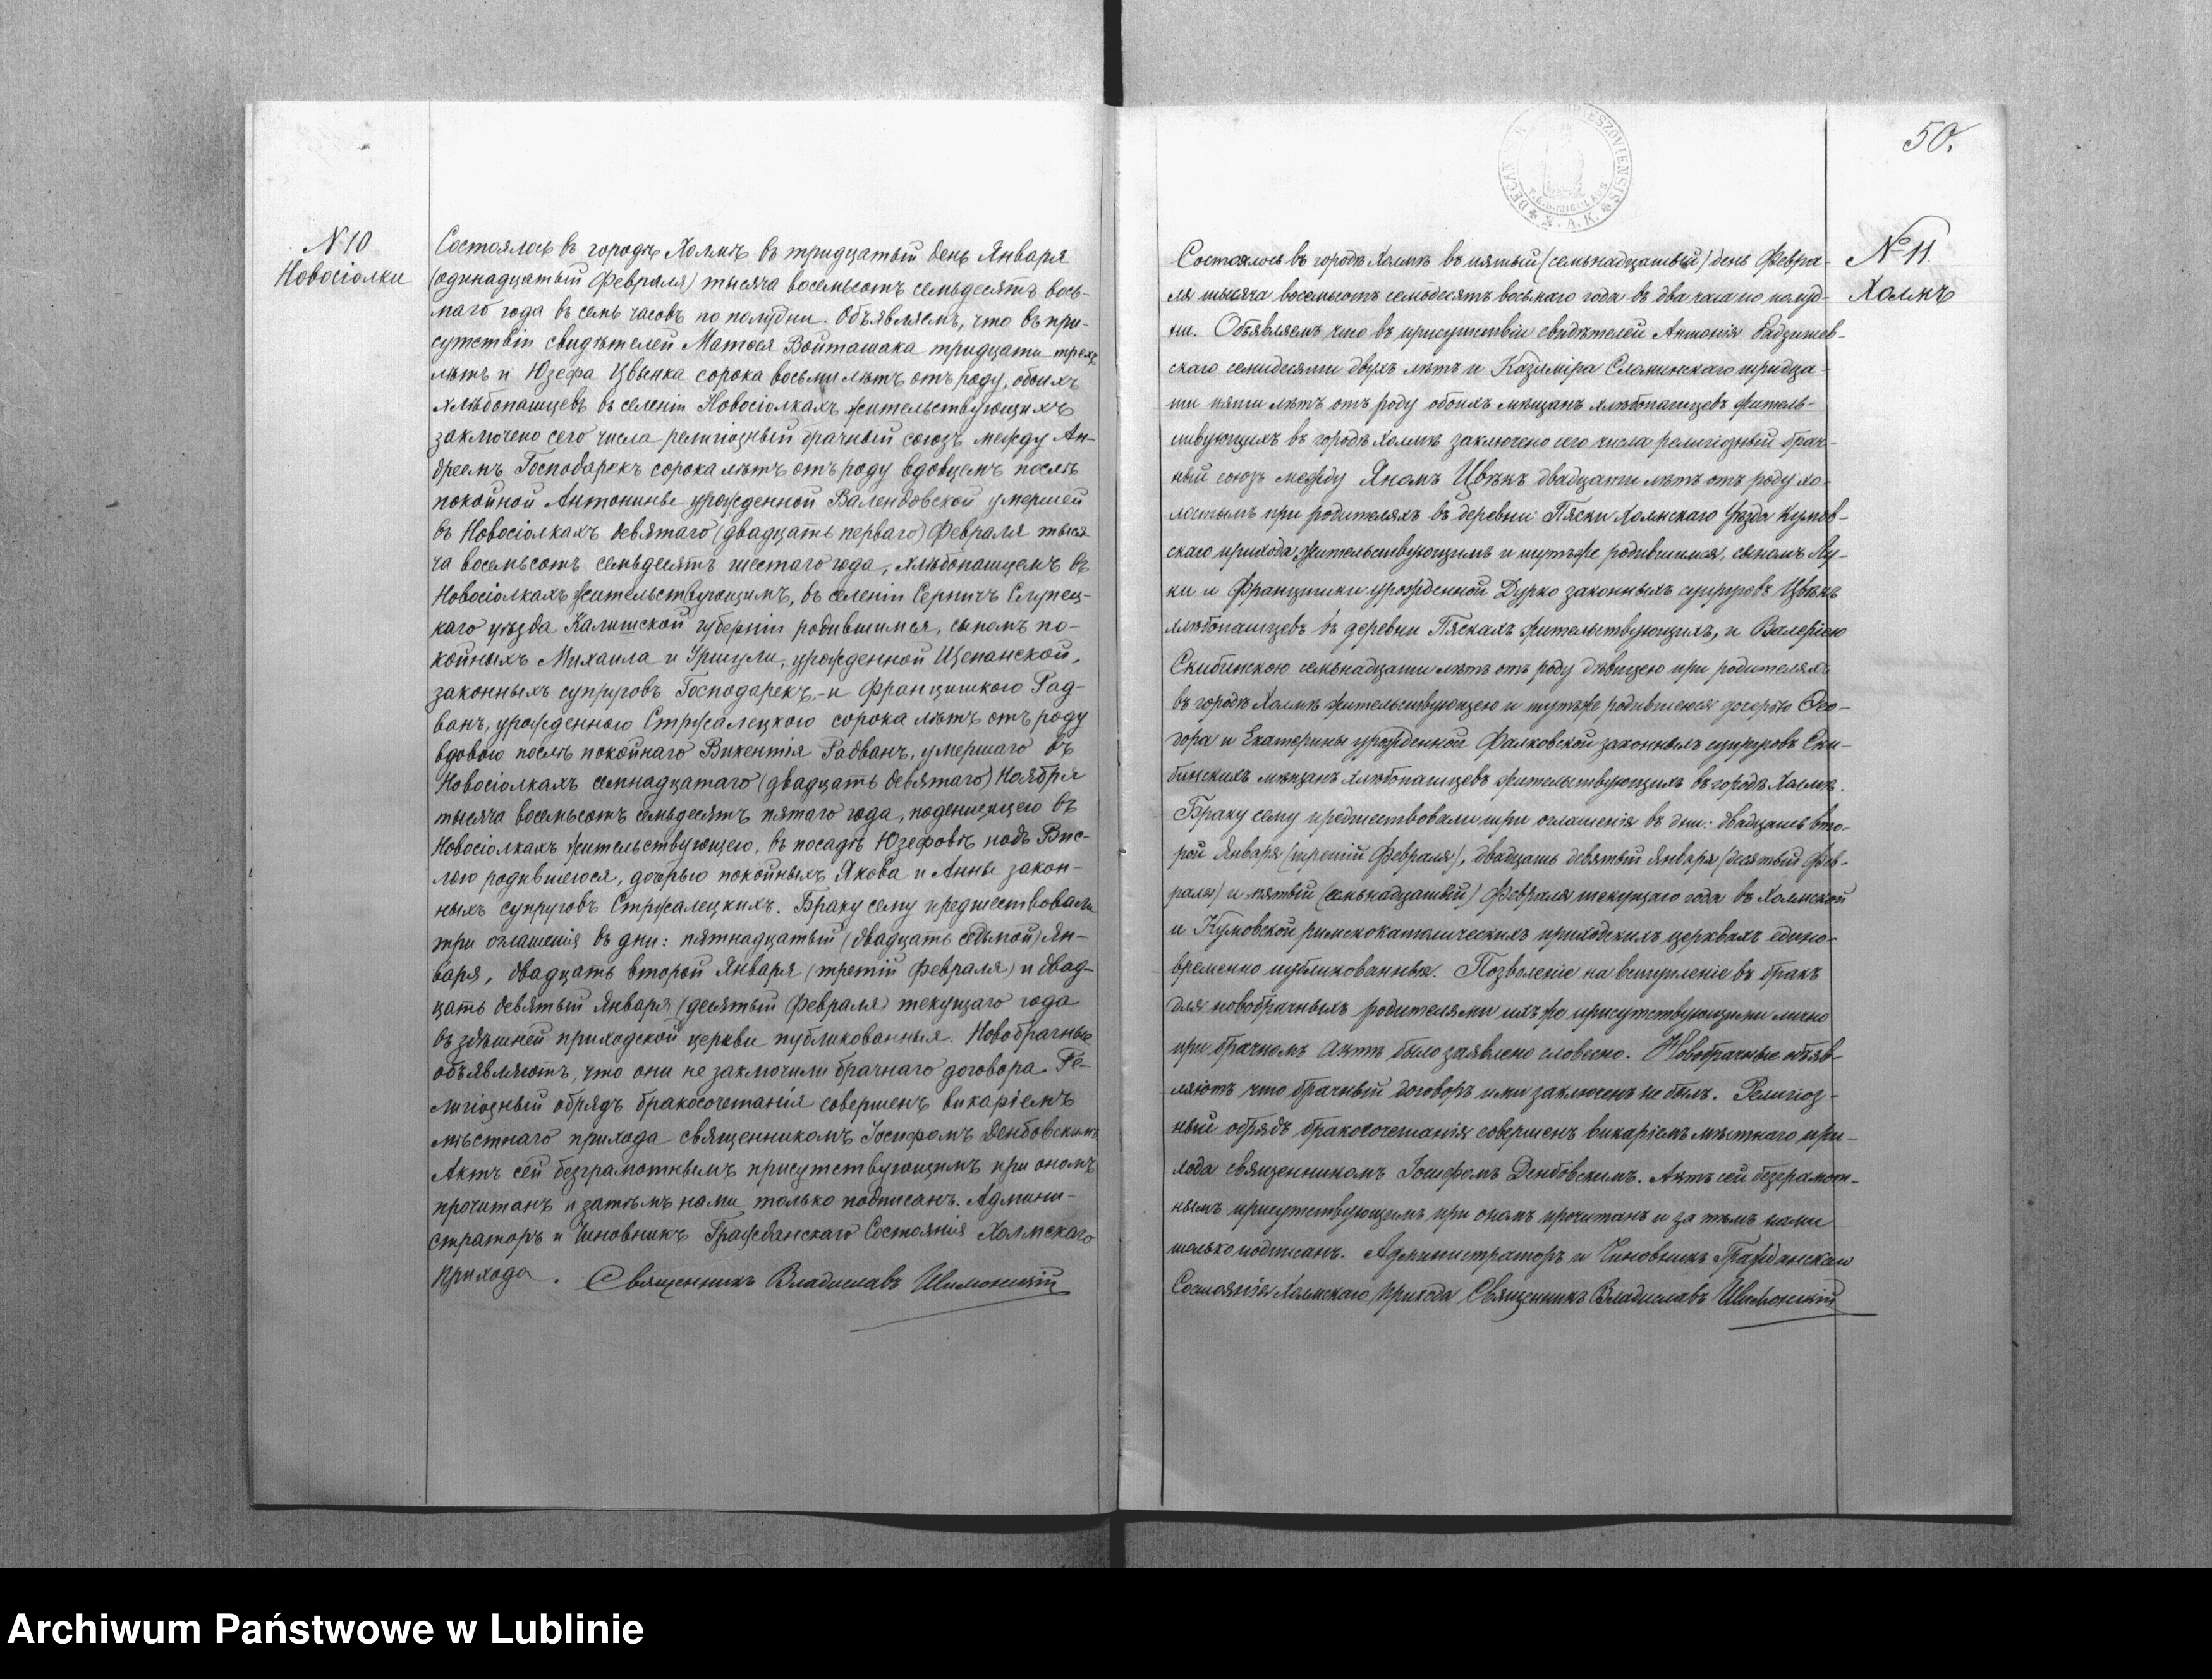 № 10
Новосіолки
Состоялось въ городѣ Холмѣ въ тридцатый день Января
(одинадцатый Февраля) тысяча восемьсотъ семьдесятъ вось-
маго года въ семь часовъ по полудни. Объявляемъ, что въ при-
сутствіи свидѣтелей Матѳея Войташака тридцати трехъ
лѣтъ и Юзефа Цвынка сорока восьми лѣтъ отъ роду, обоихъ
хлѣбопашцевъ въ селеніи Новосіолкахъ жительствующихъ
заключено сего числа религіозный брачный союзъ между Ан-
дреемъ Господарекъ сорока лѣтъ отъ роду вдовцемъ послѣ
покойной Антонины урожденной Валендовской умершей
въ Новосіолкахъ девятаго (двадцать перваго) Февраля тыся
ча восемьсотъ семьдесятъ шестаго года, хлѣбопашцемъ въ
Новосіолкахъ жительствующимъ, въ селеніи Серничъ Слупец-
каго уѣзда Калишской губерніи родившимся, сыномъ по-
койныхъ Михаила и Уршули, урожденной Щепанской,
законныхъ супруговъ Господарекъ,-и Францишкою Рад-
ванъ, урожденною Стржалецкою сорока лѣтъ отъ роду
вдовою послѣ покойнаго Викентія Радванъ, умершаго въ
Новосіолкахъ семнадцатаго (двадцать девятаго) Ноября
тысяча восемьсотъ семьдесятъ пятаго года, поденщицею въ
Новосіолкахъ жительствующею, въ посадѣ Юзефовѣ надъ Вис-
лою родившеюся, дочерью покойныхъ Якова и Анны закон-
ныхъ супруговъ Стржалецкихъ. Браку сему предшествовали
три оглашенія въ дни: пятнадцатый (двадцать седьмой) Ян-
варя, двадцать второй Января (третій Февраля) и двад-
цать девятый Января (десятый Февраля) текущаго года
въ здѣшней приходской церкви публикованныя. Новобрачные
объявляютъ, что они не заключили брачнаго договора. Ре-
лигіозный обрядъ бракосочетанія совершенъ викаріемъ
мѣстнаго прихода священникомъ Іосифомъ Дембовскимъ
Актъ сей безграмотнымъ присутствующимъ при ономъ
прочитанъ и затѣмъ нами только подписанъ. Админи-
страторъ и Чиновникъ Гражданскаго Состоянія Холмскаго
Прихода. Священникъ Владиславъ Шимонскій
50.
№ 11.
Холмъ
Состоялось въ городѣ Холмѣ въ пятый (семьнадцатый) день Февра-
ля тысяча восемьсотъ семьдесятъ восьмаго года въ два часа по полуд-
ни. Объявляемъ что въ присутствіи свидѣтелей Антонія Радзишев-
скаго семидесяти двухъ лѣтъ и Казиміра Сломинскаго тридца-
ти пяти лѣтъ отъ роду обоихъ мѣщанъ хлѣбопашцевъ житель-
ствующихъ въ городѣ Холмѣ заключено сего числа религіозный брач-
ный союзъ между Яномъ Цвѣкъ двадцати лѣтъ отъ роду хо-
лостымъ при родителяхъ въ деревни: Пяски Холмскаго Уѣзда Кумов-
скаго прихода жительствующимъ и тутъже родившимся, сыномъ Лу-
ки и Францишки урожденной Дурко законныхъ супруговъ Цвѣкъ
хлѣбопашцевъ въ деревни Пяскахъ жительствующихъ, и Валеріею
Скибинскою семьнадцати лѣтъ отъ роду дѣвицею при родителяхъ
въ городѣ Холмѣ жительствующею и тутъже родившеюся дочерью Ѳео-
дора и Екатерины урожденной Фалковской законныхъ супруговъ Ски-
бинскихъ мѣщанъ хлѣбопашцевъ жительствующихъ въ городѣ Холмѣ.
Браку сему предшествовали три оглашенія въ дни: двадцать вто-
рой Января (третій Февраля), двадцать девятый Января (десятый Фев-
раля) и пятый (семьнадцатый) Февраля текущаго года въ Холмской
и Кумовской римскокатолическихъ приходскихъ церквахъ едино-
временно публикованныя. Позволеніе на вступленіе въ бракъ
для новобрачныхъ родителями ихъ же присутствующими лично
при брачномъ актѣ было заявлено словесно. Новобрачные объяв-
ляютъ что брачный договоръ ими заключенъ не былъ. Религіоз-
ный обрядъ бракосочетанія совершенъ викаріемъ мѣстнаго при-
хода священникомъ Іосифомъ Дембовскимъ. Актъ сей безграмот-
нымъ присутствующимъ при ономъ прочитанъ и за тѣмъ нами
только подписанъ. Администраторъ и Чиновникъ Гражданскаго
Состоянія Холмскаго Прихода Священникъ Владиславъ Шимонскій
Archiwum Państwowe w Lublinie